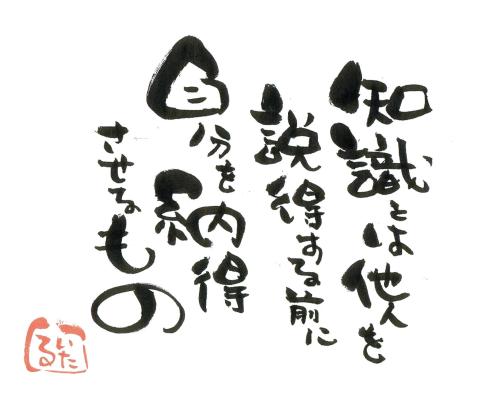 知識とは他人を
説得する前に
自分を納得
させるもの
いたる